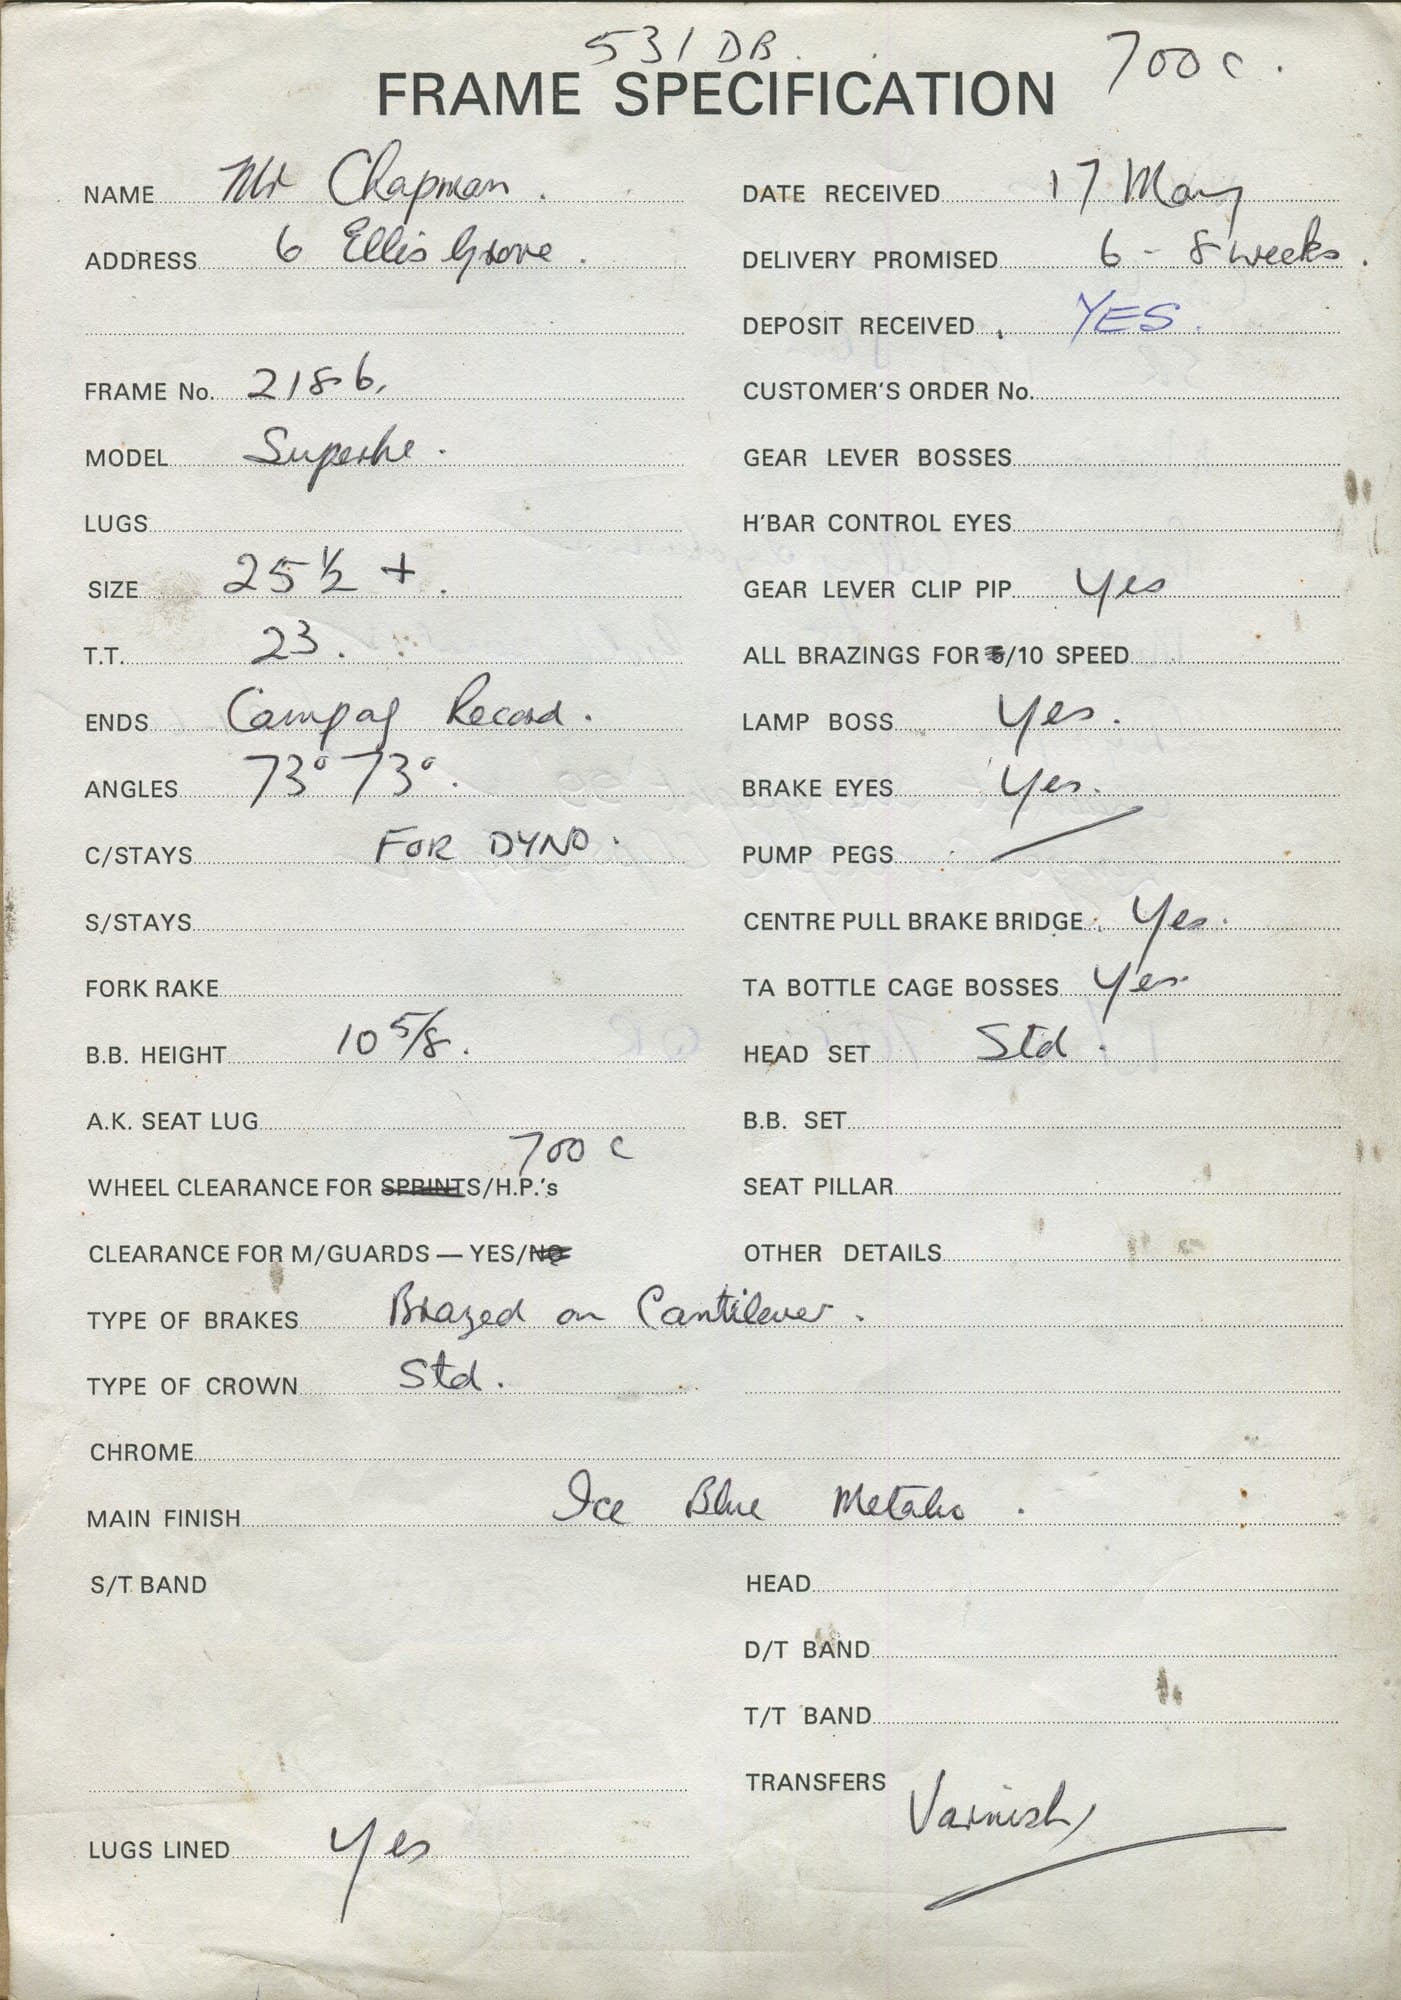 531 DB. 700 c.
FRAME SPECIFICATION
NAME Mr Chapman.
ADDRESS 6 Ellis Grove.
FRAME No. 2186.
MODEL Superbe.
LUGS
SIZE 25 ½ +.
T.T. 23.
ENDS Campag Record.
ANGLES 73° 73°.
C/STAYS FOR DYNO.
S/STAYS
FORK RAKE
B.B. HEIGHT 10 5/8.
A.K. SEAT LUG
700 c
WHEEL CLEARANCE FOR SPRINTS/H.P.'s
CLEARANCE FOR M/GUARDS — YES/NO
TYPE OF BRAKES Brazed on Cantilever.
TYPE OF CROWN Std.
CHROME
MAIN FINISH Ice Blue Metalic.
S/T BAND
LUGS LINED Yes
DATE RECEIVED 17 May
DELIVERY PROMISED 6 - 8 weeks.
DEPOSIT RECEIVED YES.
CUSTOMER'S ORDER No.
GEAR LEVER BOSSES
H'BAR CONTROL EYES
GEAR LEVER CLIP PIP Yes
ALL BRAZINGS FOR 5/10 SPEED
LAMP BOSS Yes.
BRAKE EYES Yes.
PUMP PEGS
CENTRE PULL BRAKE BRIDGE Yes.
TA BOTTLE CAGE BOSSES Yes
HEAD SET Std.
B.B. SET
SEAT PILLAR
OTHER DETAILS
HEAD
D/T BAND
T/T BAND
TRANSFERS Varnish